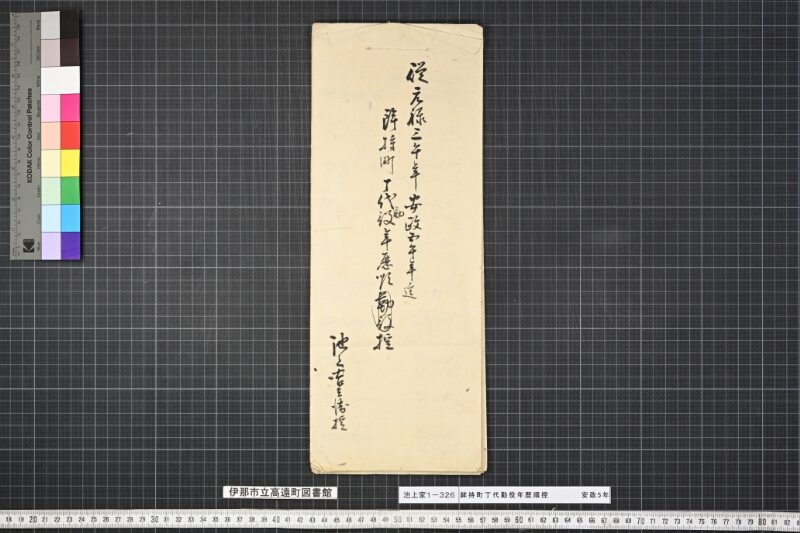 従元禄三午年安政五午年迄
鉾持町丁代役年歴順勤役控
勤
池上
控
伊那市立高遠町図書館
池上家1－326 鉾持町丁代勤役年歴順控 安政5年
KODAK Color Control Patches